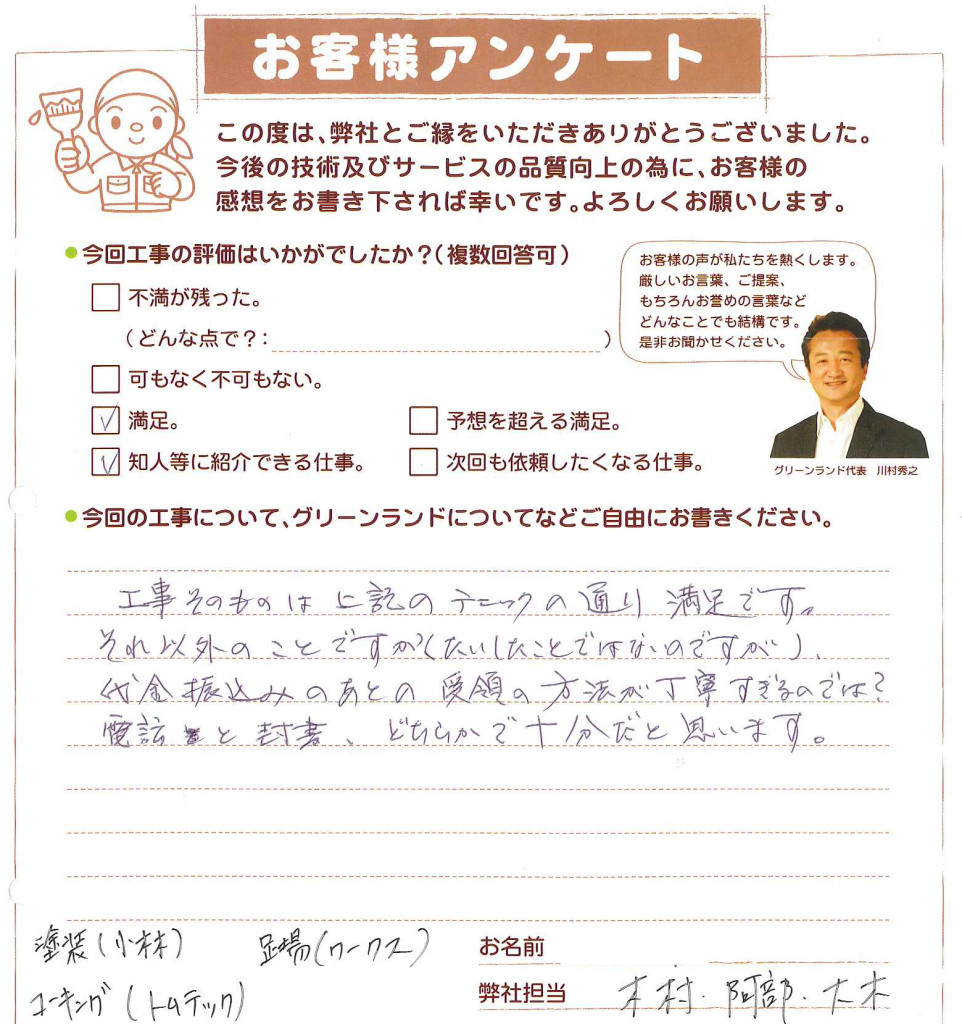 お客様アンケート
この度は、弊社とご縁をいただきありがとうございました。
今後の技術及びサービスの品質向上の為に、お客様の
感想をお書き下されば幸いです。よろしくお願いします。
今回工事の評価はいかがでしたか?(複数回答可)
不満が残った。
(どんな点で?: )
可もなく不可もない。
満足。
予想を超える満足。
知人等に紹介できる仕事。
次回も依頼したくなる仕事。
お客様の声が私たちを熱くします。
厳しいお言葉、ご提案、
もちろんお誉めの言葉など
どんなことでも結構です。
是非お聞かせください。
グリーンランド代表 川村秀之
今回の工事について、グリーンランドについてなどご自由にお書きください。
工事そのものは上記のチェックの通り満足です。
それ以外のことですが(たいしたことではないのですが)、
代金振込みのあとの受領の方法が丁寧すぎるのでは?
電話と封書、どちらかで十分だと思います。
塗装(小林) 足場(ワークス)
コーキング(トムテック)
お名前
弊社担当 木村.阿部.大木